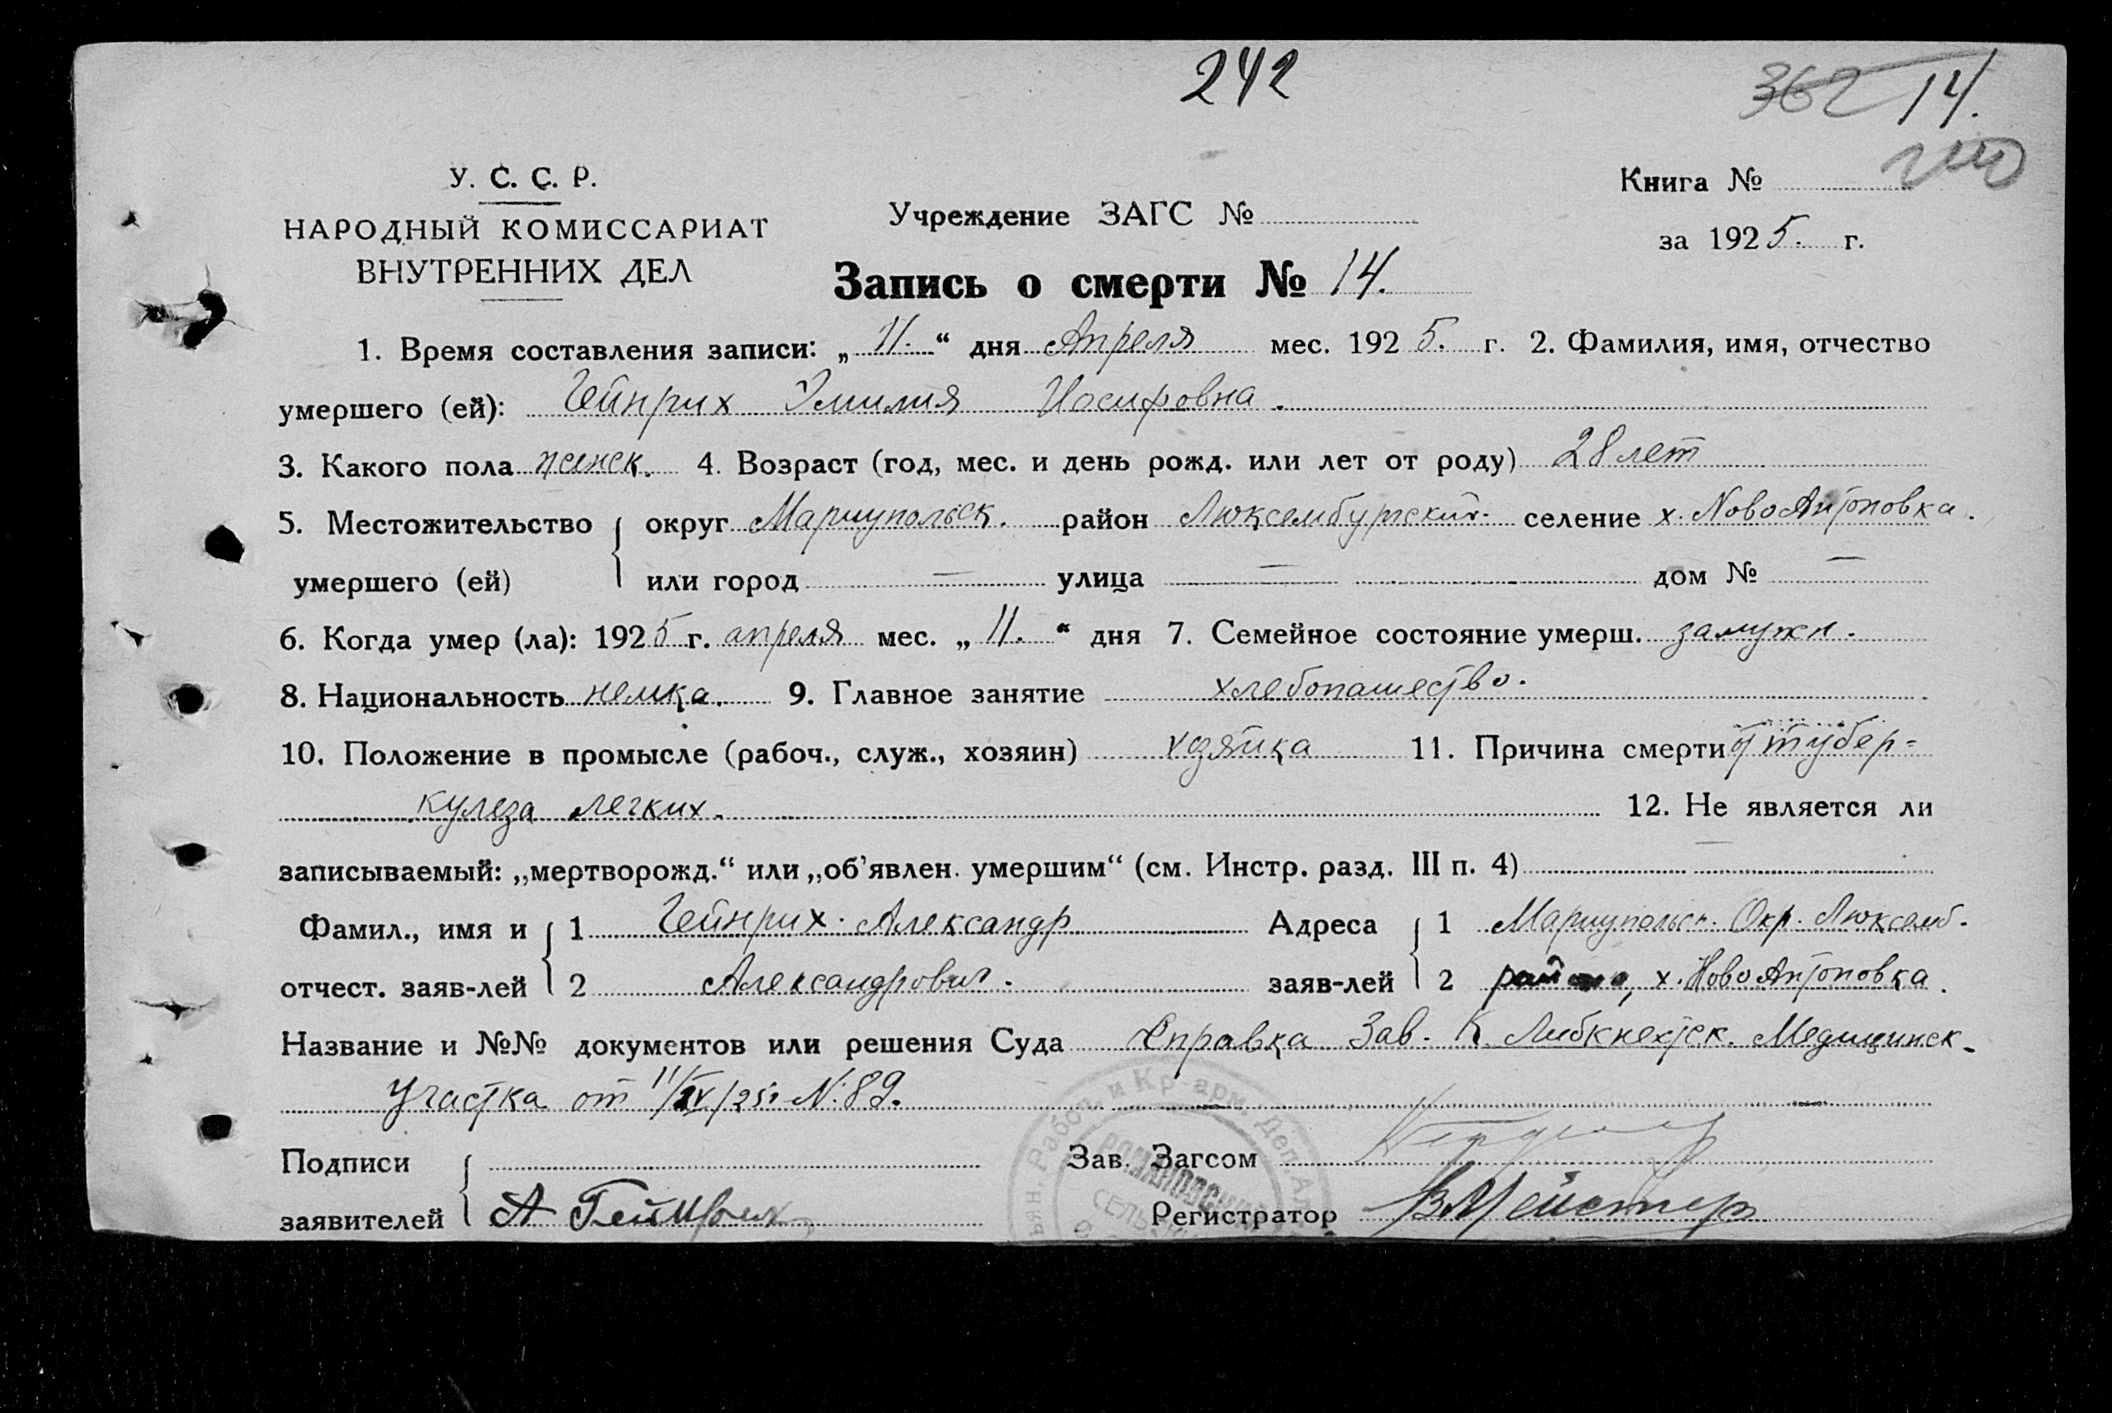 242
362 14.
У. С. С. Р.
НАРОДНЫЙ КОМИССАРИАТ
ВНУТРЕННИХ ДЕЛ
Учреждение ЗАГС №
Книга №
за 1925. г.
Запись о смерти № 14.
1. Время составления записи: „11.“ дня Апреля мес. 1925. г. 2. Фамилия, имя, отчество
умершего (ей): Гейнрих Эмилия Иосифовна.
3. Какого пола женск. 4. Возраст (год, мес. и день рожд. или лет от роду) 28 лет
5. Местожительство { округ Мариупольск. район Люксембургский. селение х. NовоАнтоновка.
умершего (ей) или город — улица — дом № —
6. Когда умер (ла): 1925 г. апреля мес. „11.“ дня 7. Семейное состояние умерш. замужн.
8. Национальность немка. 9. Главное занятие хлебопашество.
10. Положение в промысле (рабоч., служ., хозяин) хозяйка 11. Причина смерти от тубер=
кулеза легких. 12. Не является ли
записываемый: „мертворожд.“ или „об'явлен. умершим“ (см. Инстр. разд. III п. 4) —
Фамил., имя и { 1 Гейнрих. Александр Адреса { 1 Мариупольск. Окр. Люксемб.
отчест. заяв-лей 2 Александрович. заяв-лей 2 района, х. НовоАнтоновка.
Название и №№ документов или решения Суда Справка Зав. К. Либкнехтск. Медицинск.
Участка от 11/IV/25. N: 89.
Подписи Зав. Загсом
заявителей { А Гейнрих Регистратор ВМейстер
Рабоч. и Кр-арм. Деп.